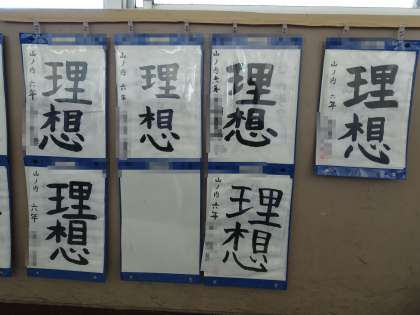 理想
山ノ内 六年
理想
山ノ内 六年
理想
山ノ内 六年
理想
山ノ内 六年
理想
山ノ内 六年
理想
山ノ内 六年